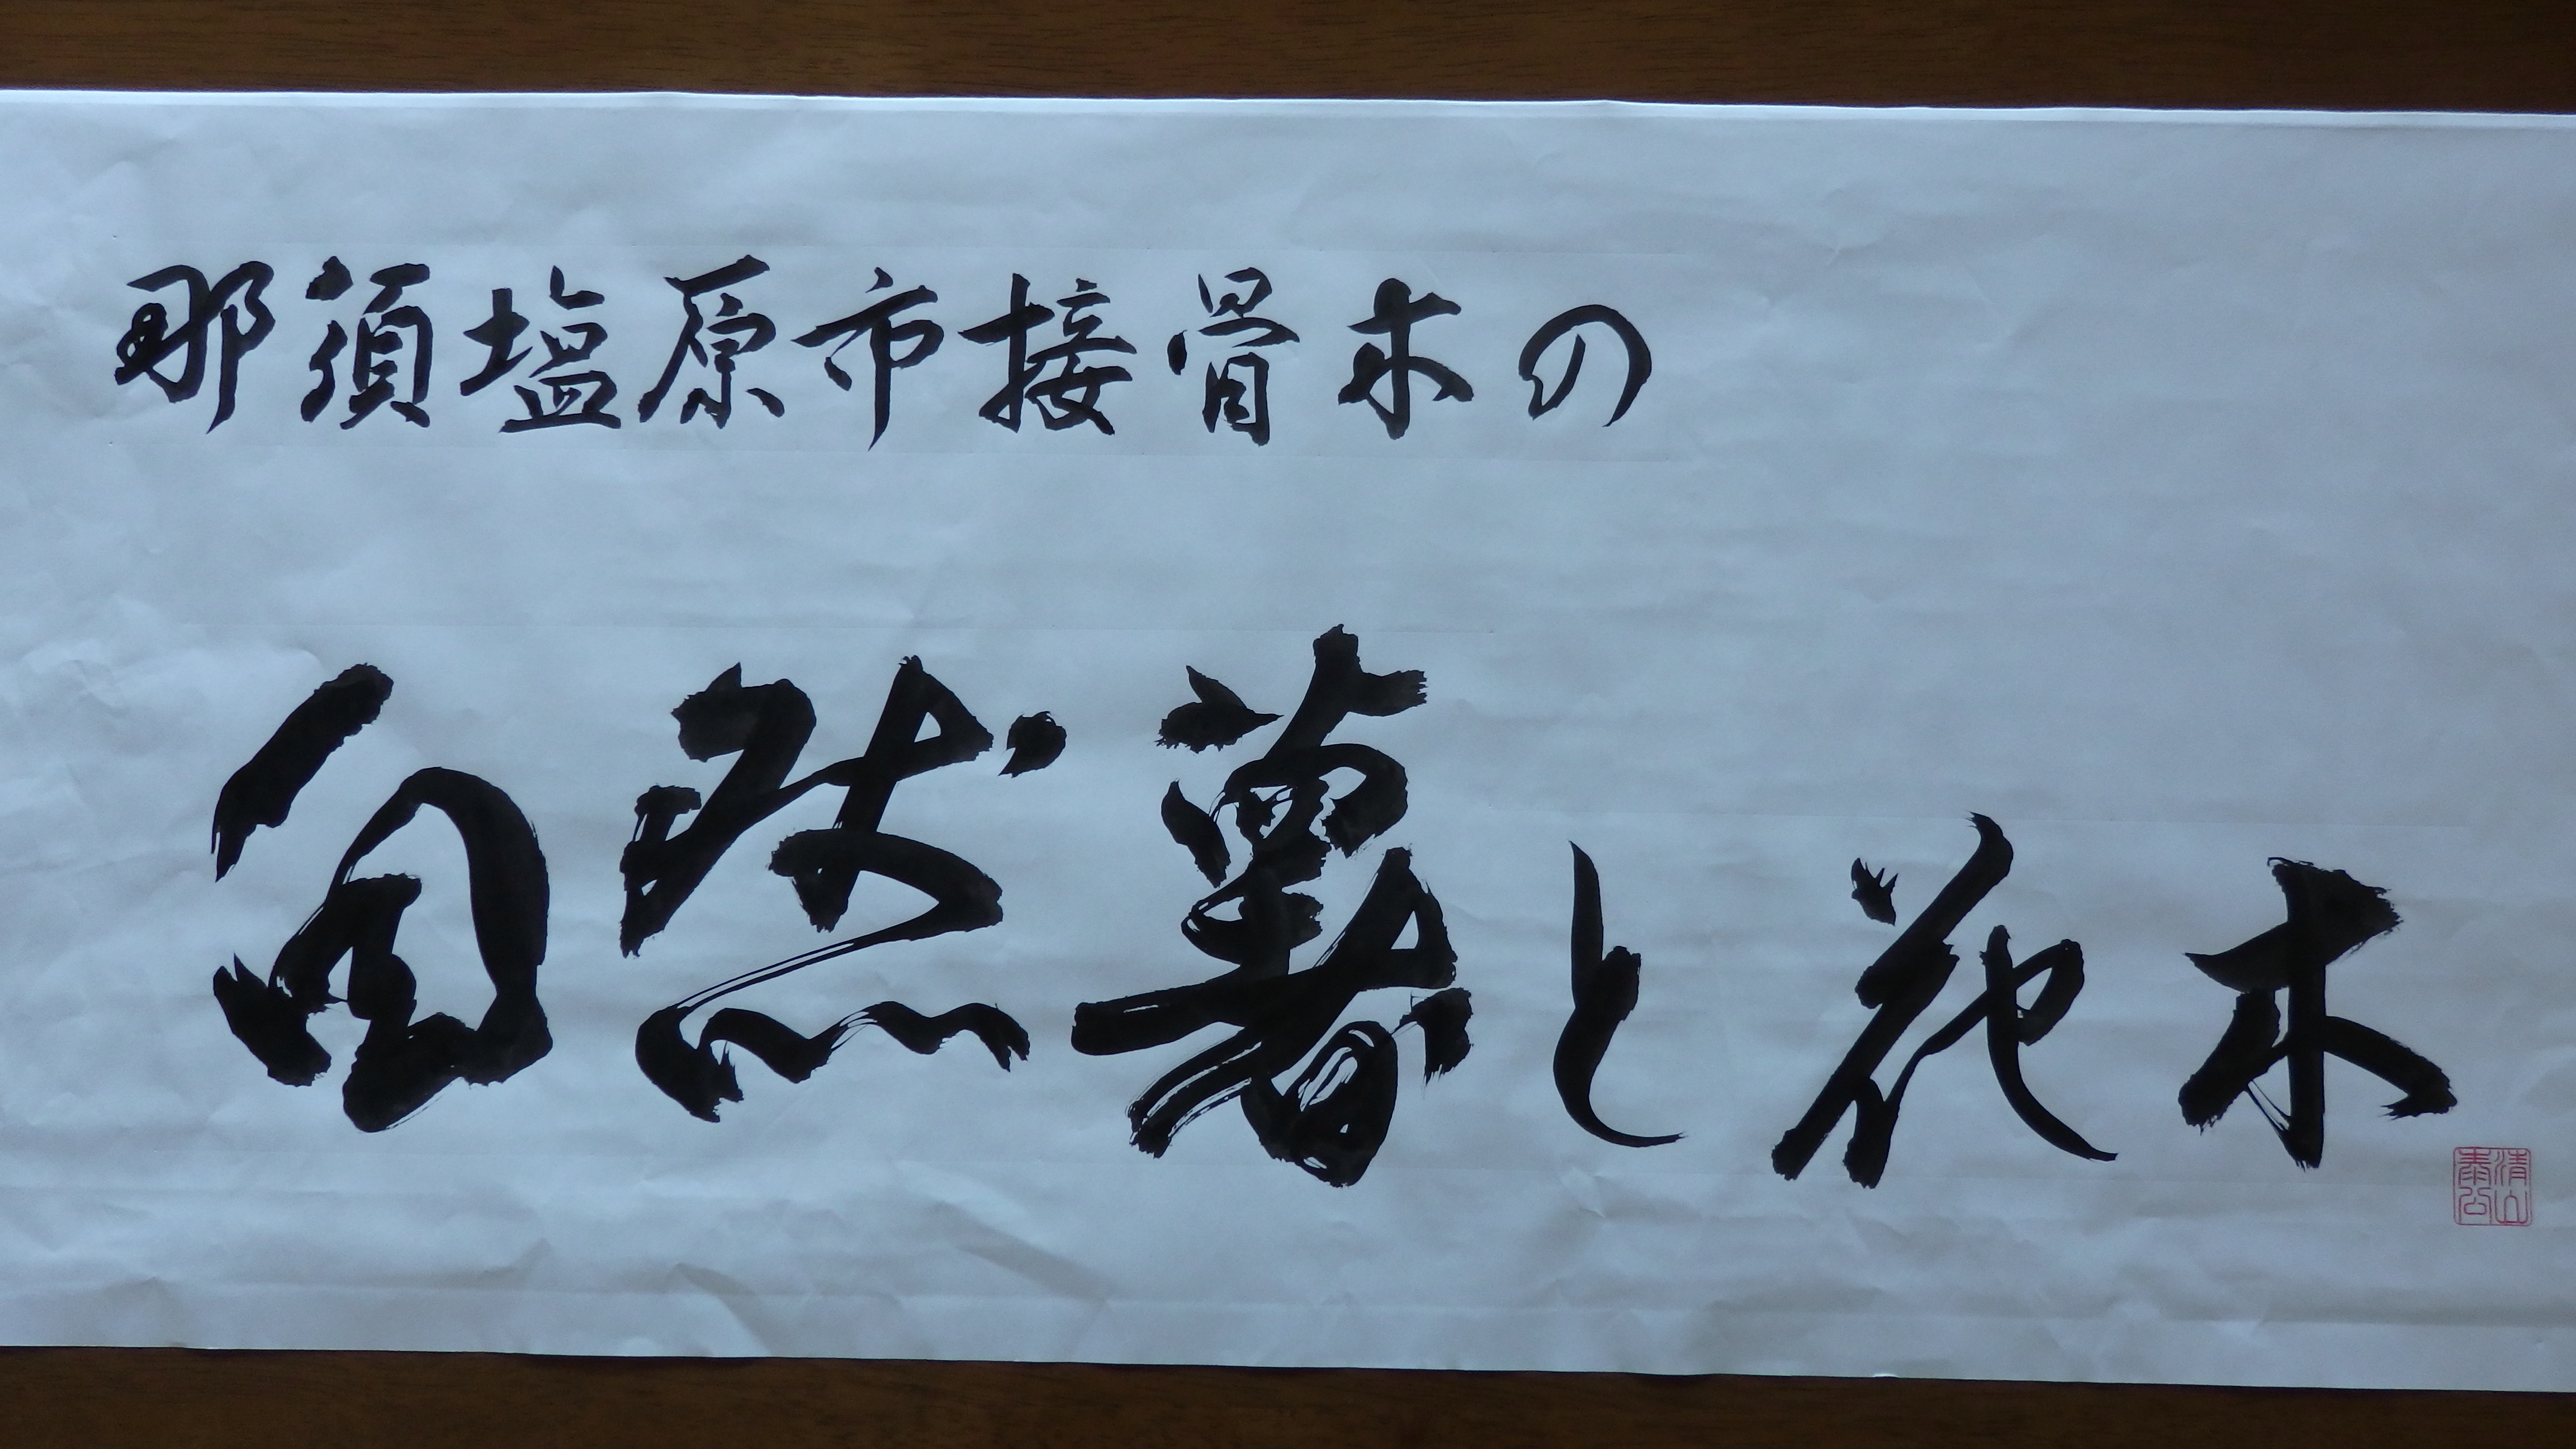 那須塩原市接骨木の
自然薯と花木
清山
泰公